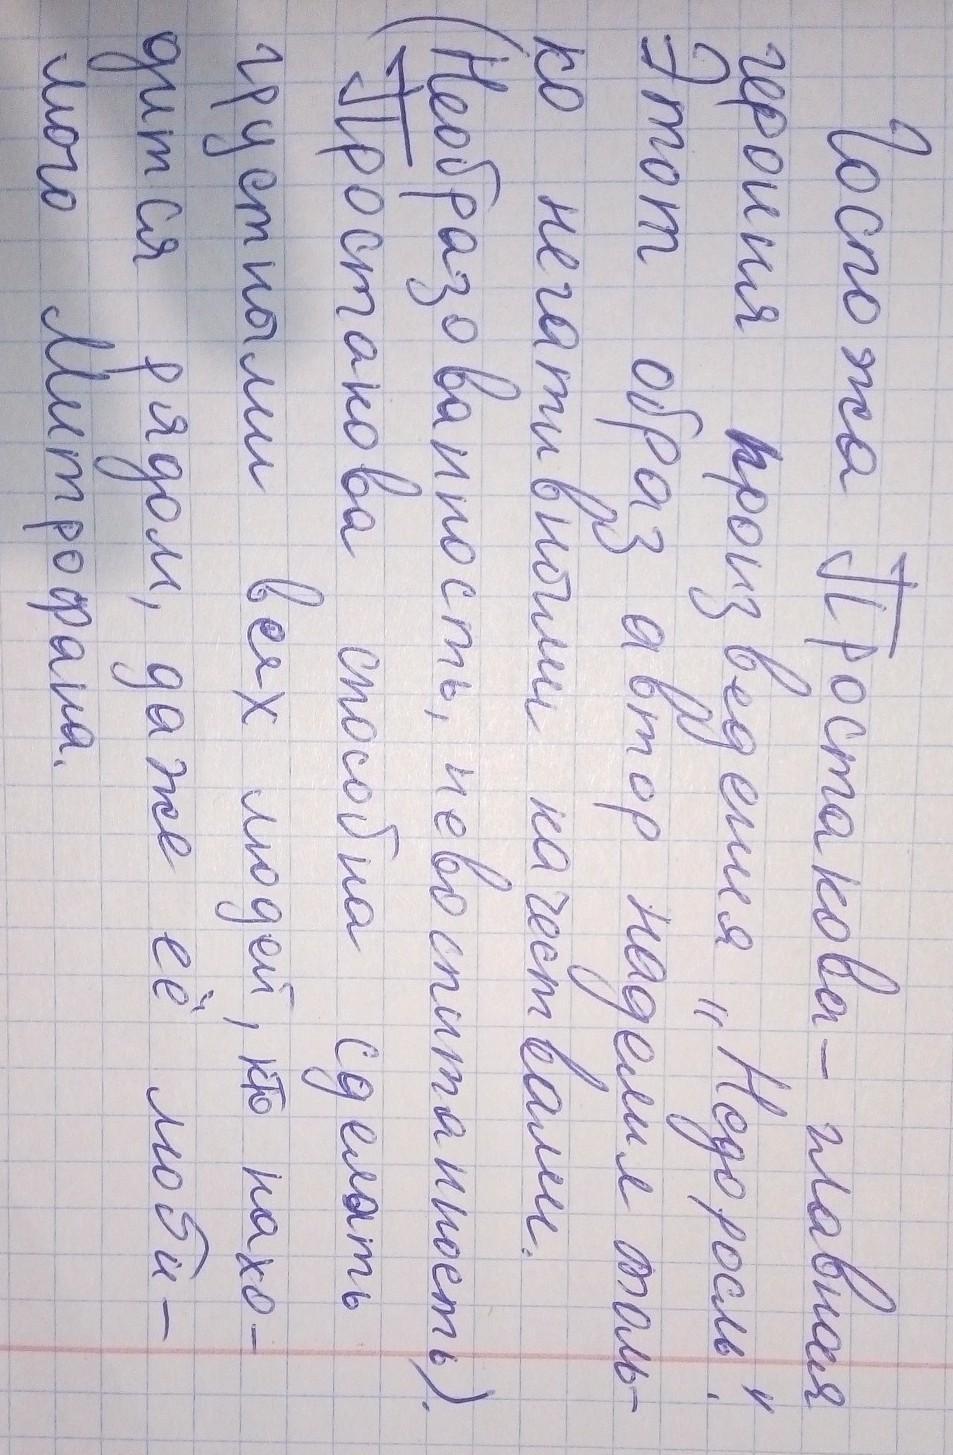 Госпожа Простакова - главная
героиня произведения "Недоросль".
Этот образ автор наделил толь-
ко негативными качествами.
(Необразованность, невоспитанность).
Простакова способна сделать
грустными всех людей, кто нахо-
дится рядом, даже её люби-
мого Митрофана.